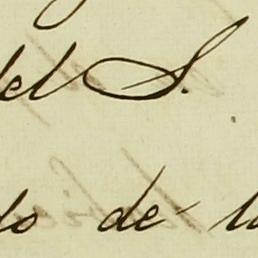 del S.
do de la